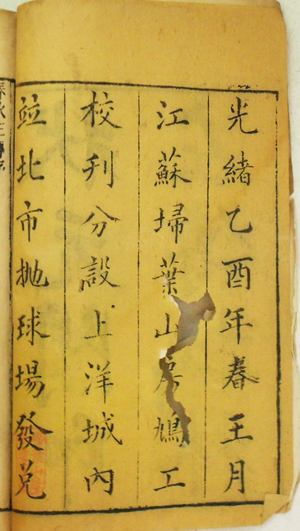 光緒乙酉年春王月
江蘇埽葉山房鳩工
校刋分設上洋城內
竝北市拋球場發兌